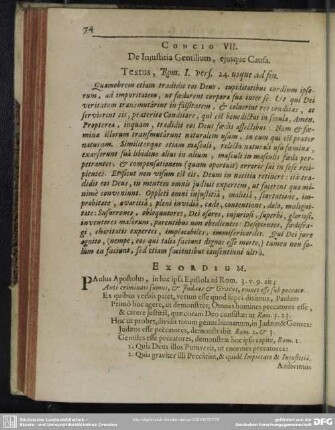 74
CONCIO VII.
De Injustitia Gentilium, ejusque Causa.
Textus, Rom. I. vers. 24. usque ad fin.
Quamobrem etiam tradidit eos Deus, cupiditatibus cordium ipso-
rum, ad impuritatem, ut fœdarent corpora sua inter se. Ut qui Dei
veritatem transmutârunt in falsitatem, & coluerint res conditas, ac
servierint eis, præterito Conditore, qui est benedictus in secula, Amen.
Propterea, inquam, tradidit eos Deus fœdis affectibus: Nam & fœ-
minæ illorum transmutârunt naturalem usum, in eum qui est præter
naturam. Similiterque etiam masculi, relicto naturali usu fæminæ,
exarserunt suâ libidine alius in alium, masculi in masculis fœda per-
petrantes: & compensationem (quam oportuit) erroris sui in sese reci-
pientes. Et sicut non visum est eis, Deum in notitia retinere: ita tra-
didit eos Deus, in mentem omnis judicii expertem, ut facerent quæ mi-
nimè conveniunt. Oppleti omni injustitiâ, malitiâ, scortatione, im-
probitate, avaritiâ; pleni invidiâ, cæde, contentione, dolo, maligni-
tate: Susurrones, obloquutores, Dei osores, injuriosi, superbi, gloriosi,
inventores malorum, parentibus non obedientes: Desipientes, fœdifra-
gi, charitatis expertes, implacabiles, immisericordes. Qui Dei jure
agnito, (nempe, eos qui talia faciunt dignos esse morte,) tamen non so-
lùm ea faciunt, sed etiam facientibus assentiunt ultrò.
EXORDIUM.
PAulus Apostolus, in hac ipsa Epistola ad Rom. 3. v. 9. ait;
Ante criminati sumus, & Judæos & Græcos, omnes esse sub peccato.
Ex quibus verbis patet, verum esse quod supra diximus, Paulum
Primò hoc agere, ut demonstret, Omnes homines peccatores esse,
& carere justitiâ, quæ coram Deo consistat ut Rom. 3. 23.
Huc ut probet, dividit totum genus humanum, in Judæos & Gentes:
Judæos esse peccatores, demonstrabit Rom. 2. & 3.
Gentiles esse peccatores, demonstrat hoc ipso capite, Rom. 1.
1. Quia Deus illos Puniverit, ut enormes peccatores:
2. Quia graviter illi Peccârint, & quidè Impietate & Injustitiâ.
Audivimus